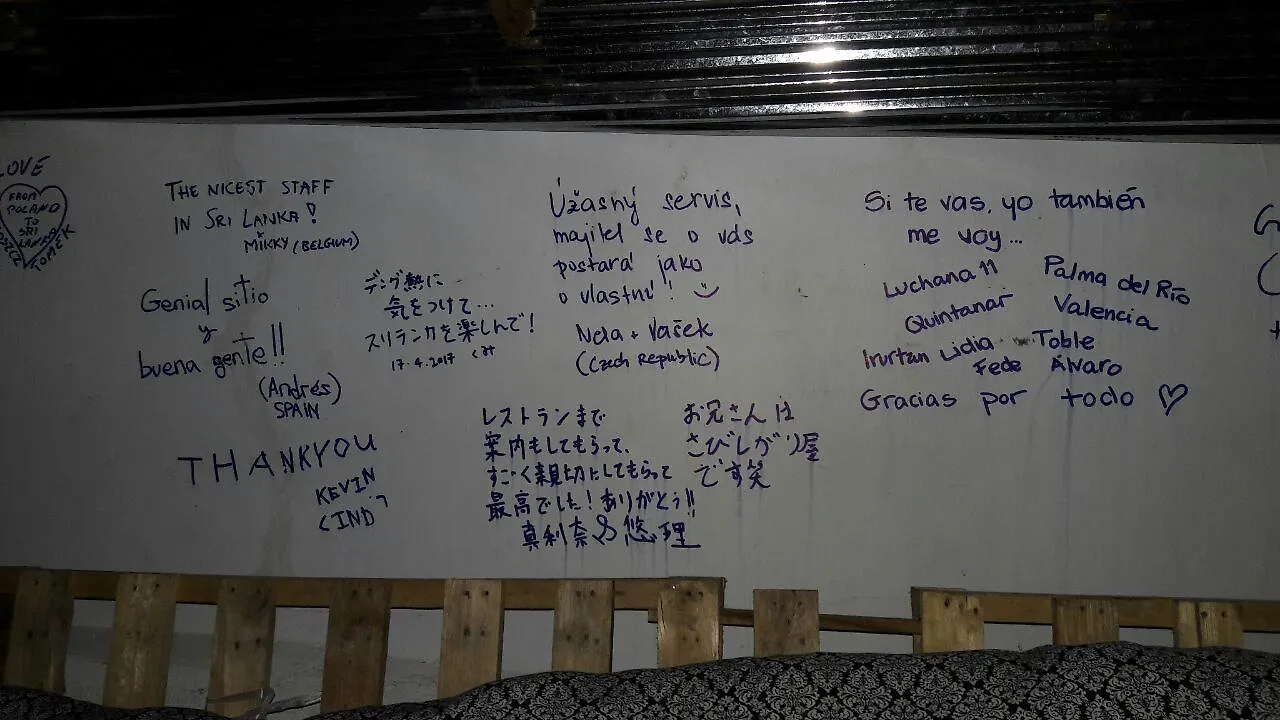 LOVE
FROM
POLAND
TO
SRI
LANKA
TOMEK
THE NICEST STAFF
IN SRI LANKA!
MIKKY (BELGIUM)
Genial sitio
y
buena gente!!
(Andrés)
SPAIN
デング熱に
気をつけて...
スリランカを楽しんで!
17.4.2017 くみ
THANKYOU
KEVIN
Úžasný servis,
majitel se o vás
postará jako
o vlastní!
Nela + Vašek
(Czech Republic)
レストランまで
案内もしてもらって、
すごく親切にしてもらって
最高でした!ありがとう!!
真利奈&悠理
お兄さんは
さびしがり屋
です笑
Si te vas, yo también
me voy...
Luchana 11 Palma del Río
Quintanar Valencia
Lidia Toble
Fede Álvaro
Gracias por todo ♡